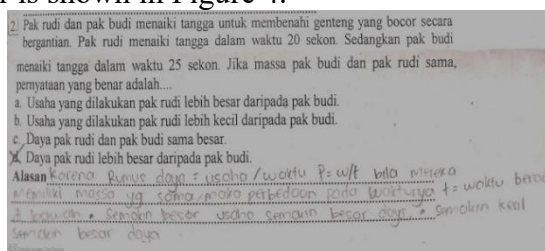 er is shown in Figure 4.
2. Pak rudi dan pak budi menaiki tangga untuk membenahi genteng yang bocor secara
bergantian. Pak rudi menaiki tangga dalam waktu 20 sekon. Sedangkan pak budi
menaiki tangga dalam waktu 25 sekon. Jika massa pak budi dan pak rudi sama,
pernyataan yang benar adalah....
a. Usaha yang dilakukan pak rudi lebih besar daripada pak budi.
b. Usaha yang dilakukan pak rudi lebih kecil daripada pak budi.
c. Daya pak rudi dan pak budi sama besar.
d. Daya pak rudi lebih besar daripada pak budi.
Alasan Karena Rumus daya = usaha / waktu P = w/t bila mereka
memiliki massa yg sama maka perbedaan pada waktunya t = waktu
Semakin besar usaha semakin besar daya • Semakin kecil
semakin besar daya